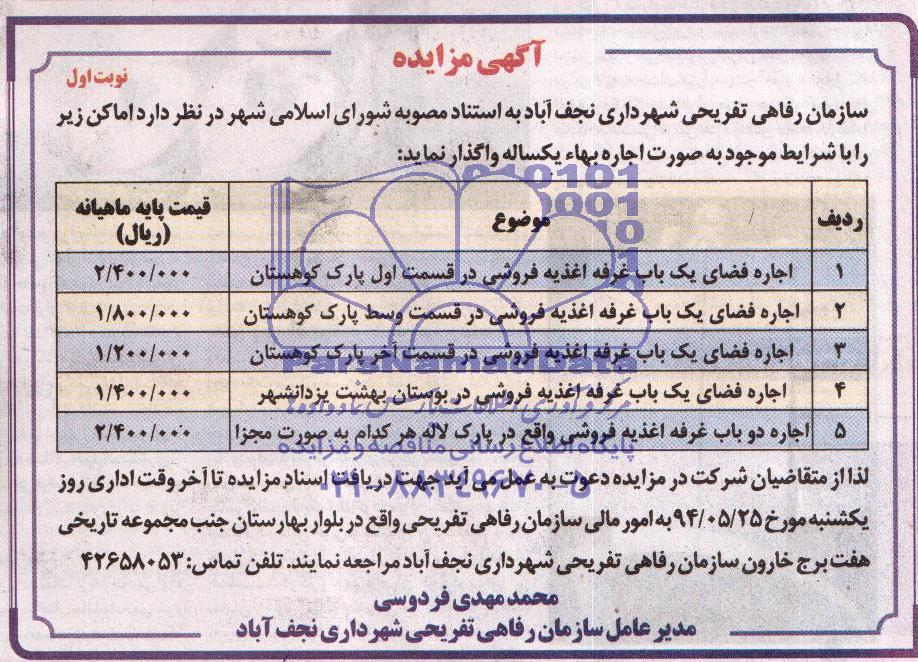 آگهی مزایده
نوبت اول
سازمان رفاهی تفریحی شهرداری نجف آباد به استناد مصوبه شورای اسلامی شهر در نظر دارد اماکن زیر
را با شرایط موجود به صورت اجاره بهاء یکساله واگذار نماید:
ردیف موضوع قیمت پایه ماهیانه (ریال)
۱ اجاره فضای یک باب غرفه اغذیه فروشی در قسمت اول پارک کوهستان ۲/۴۰۰/۰۰۰
۲ اجاره فضای یک باب غرفه اغذیه فروشی در قسمت وسط پارک کوهستان ۱/۸۰۰/۰۰۰
۳ اجاره فضای یک باب غرفه اغذیه فروشی در قسمت آخر پارک کوهستان ۱/۲۰۰/۰۰۰
۴ اجاره فضای یک باب غرفه اغذیه فروشی در بوستان بهشت یزدانشهر ۱/۴۰۰/۰۰۰
۵ اجاره دو باب غرفه اغذیه فروشی واقع در پارک لاله هر کدام به صورت مجزا ۲/۴۰۰/۰۰۰
لذا از متقاضیان شرکت در مزایده دعوت به عمل می آید جهت دریافت اسناد مزایده تا آخر وقت اداری روز
یکشنبه مورخ ۹۴/۰۵/۲۵ به امور مالی سازمان رفاهی تفریحی واقع در بلوار بهارستان جنب مجموعه تاریخی
هفت برج خارون سازمان رفاهی تفریحی شهرداری نجف آباد مراجعه نمایند. تلفن تماس: ۴۲۶۵۸۰۵۳
محمد مهدی فردوسی
مدیر عامل سازمان رفاهی تفریحی شهرداری نجف آباد
ParsNamadData
پایگاه اطلاع رسانی مناقصه و مزایده
۰۲۱-۸۸۳۴۹۶۷۰-۵